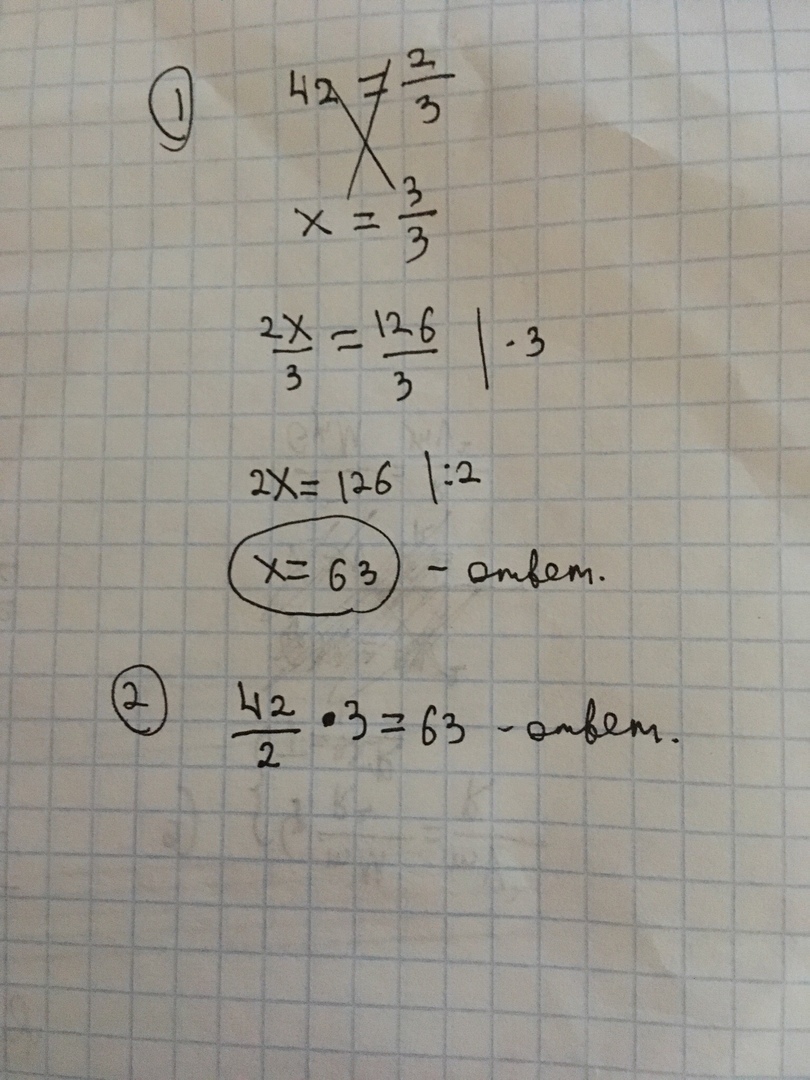 ① 42 = 2/3
x = 3/3
2x/3 = 126/3 | · 3
2x = 126 | : 2
x = 63 - ответ.
② 42/2 · 3 = 63 - ответ.